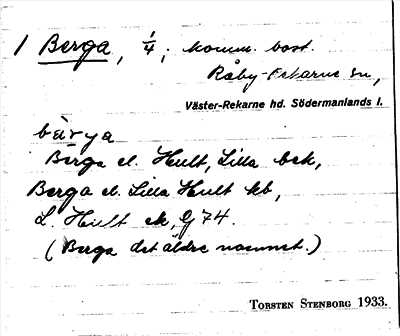 1 Berga, 1/4, komm. bost.
Råby-Rekarne sn,
Väster-Rekarne hd. Södermanlands l.
bärya
Berga el. Hult, Lilla bek,
Berga el. Lilla Hult kb,
L. Hult ek, Gj 74.
(Berga det äldre namnet.)
TORSTEN STENBORG 1933.